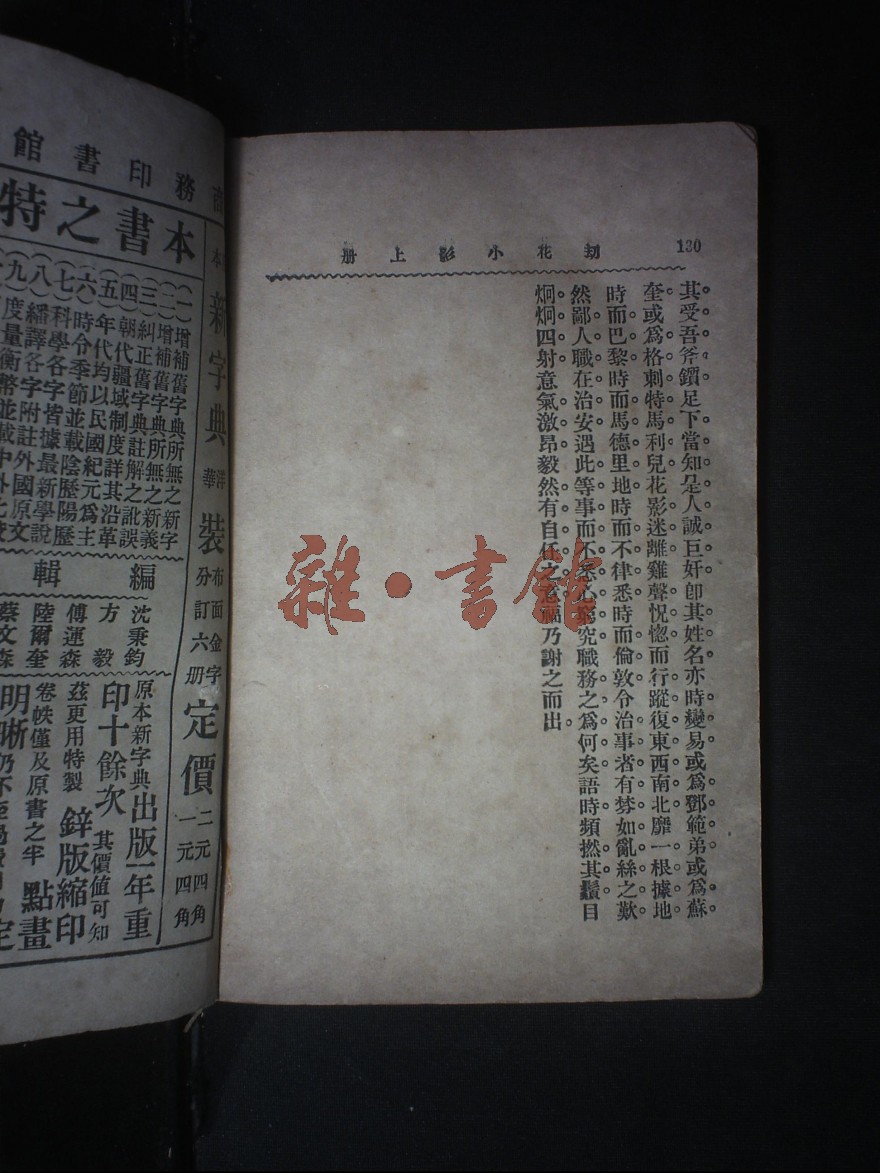 130
劫花小影上册
其受吾斧鑕足下當知是人誠巨奸卽其姓名亦時變易或爲鄧範弟或爲蘇
奎或爲格刺特馬利兒花影迷離雞聲怳惚而行蹤復東西南北靡一根據地
時而巴黎時而馬德里地時而不律悉時而倫敦令治事者有棼如亂絲之歎
然鄙人職在治安遇此等事而不悉心窮究職務之爲何矣語時頻撚其鬚目
炯炯四射意氣激昂毅然有自任之意福乃謝之而出
雜·書館
商務印書館
本新字典
洋裝
華裝
布面金字
分訂六册
定價
二元四角
一元四角
本書之特
(一)增補舊字典所無之新字
(二)增補舊字典所無之新義
(三)糾正舊字典註解之訛誤
(四)朝代疆域制度詳其沿革
(五)年代均以民國紀元爲主
(六)時令季節並載陰歷陽歷
(七)科學各字皆據最新學說
(八)繙譯各字附註外國原文
(九)度量衡幣並載中外之
編輯
沈秉鈞
方毅
傅運森
陸爾奎
蔡文森
原本新字典出版一年重
印十餘次其價値可知
茲更用特製鋅版縮印
卷帙僅及原書之半點畫
明晰仍不